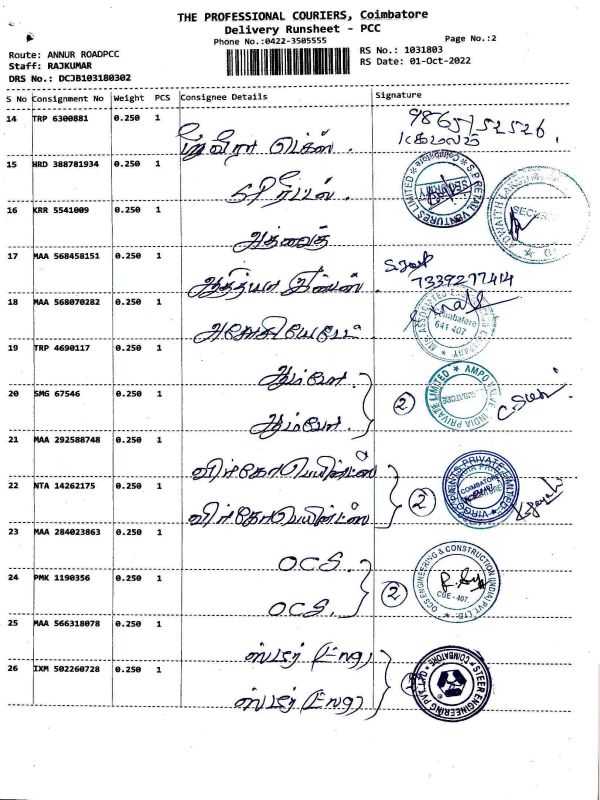 THE PROFESSIONAL COURIERS, Coimbatore
Delivery Runsheet - PCC
Phone No.:0422-3505555
Page No.:2
Route: ANNUR ROADPCC
RS No.: 1031803
Staff: RAJKUMAR
RS Date: 01-Oct-2022
DRS No.: DCJB103180302
S No Consignment No Weight PCS Consignee Details Signature
14 TRP 6300881 0.250 1
9865152526
15 HRD 388781934 0.250 1
S.P ரீட்டல்
16 KRR 5541009 0.250 1
அத்வைத்
17 MAA 568458151 0.250 1
7339277414
18 MAA 568070282 0.250 1
அசோசியேட்
641 407
19 TRP 4690117 0.250 1
ஆம்போ
20 SMG 67546 0.250 1
ஆம்போ
2
21 MAA 292588748 0.250 1
விர்கோ பெயிண்ட்ஸ்
22 NTA 14262175 0.250 1
விர்கோ பெயிண்ட்ஸ்
2
23 MAA 284023863 0.250 1
OCS
24 PMK 1190356 0.250 1
OCS
2
OCS ENGINEERING & CONSTRUCTION (INDIA) PVT LTD
CBE - 407
25 MAA 566318078 0.250 1
ஸ்டீர் (Eng)
26 IXM 502260728 0.250 1
ஸ்டீர் (Eng)
STEER ENGINEERING PVT. LTD
COIMBATORE